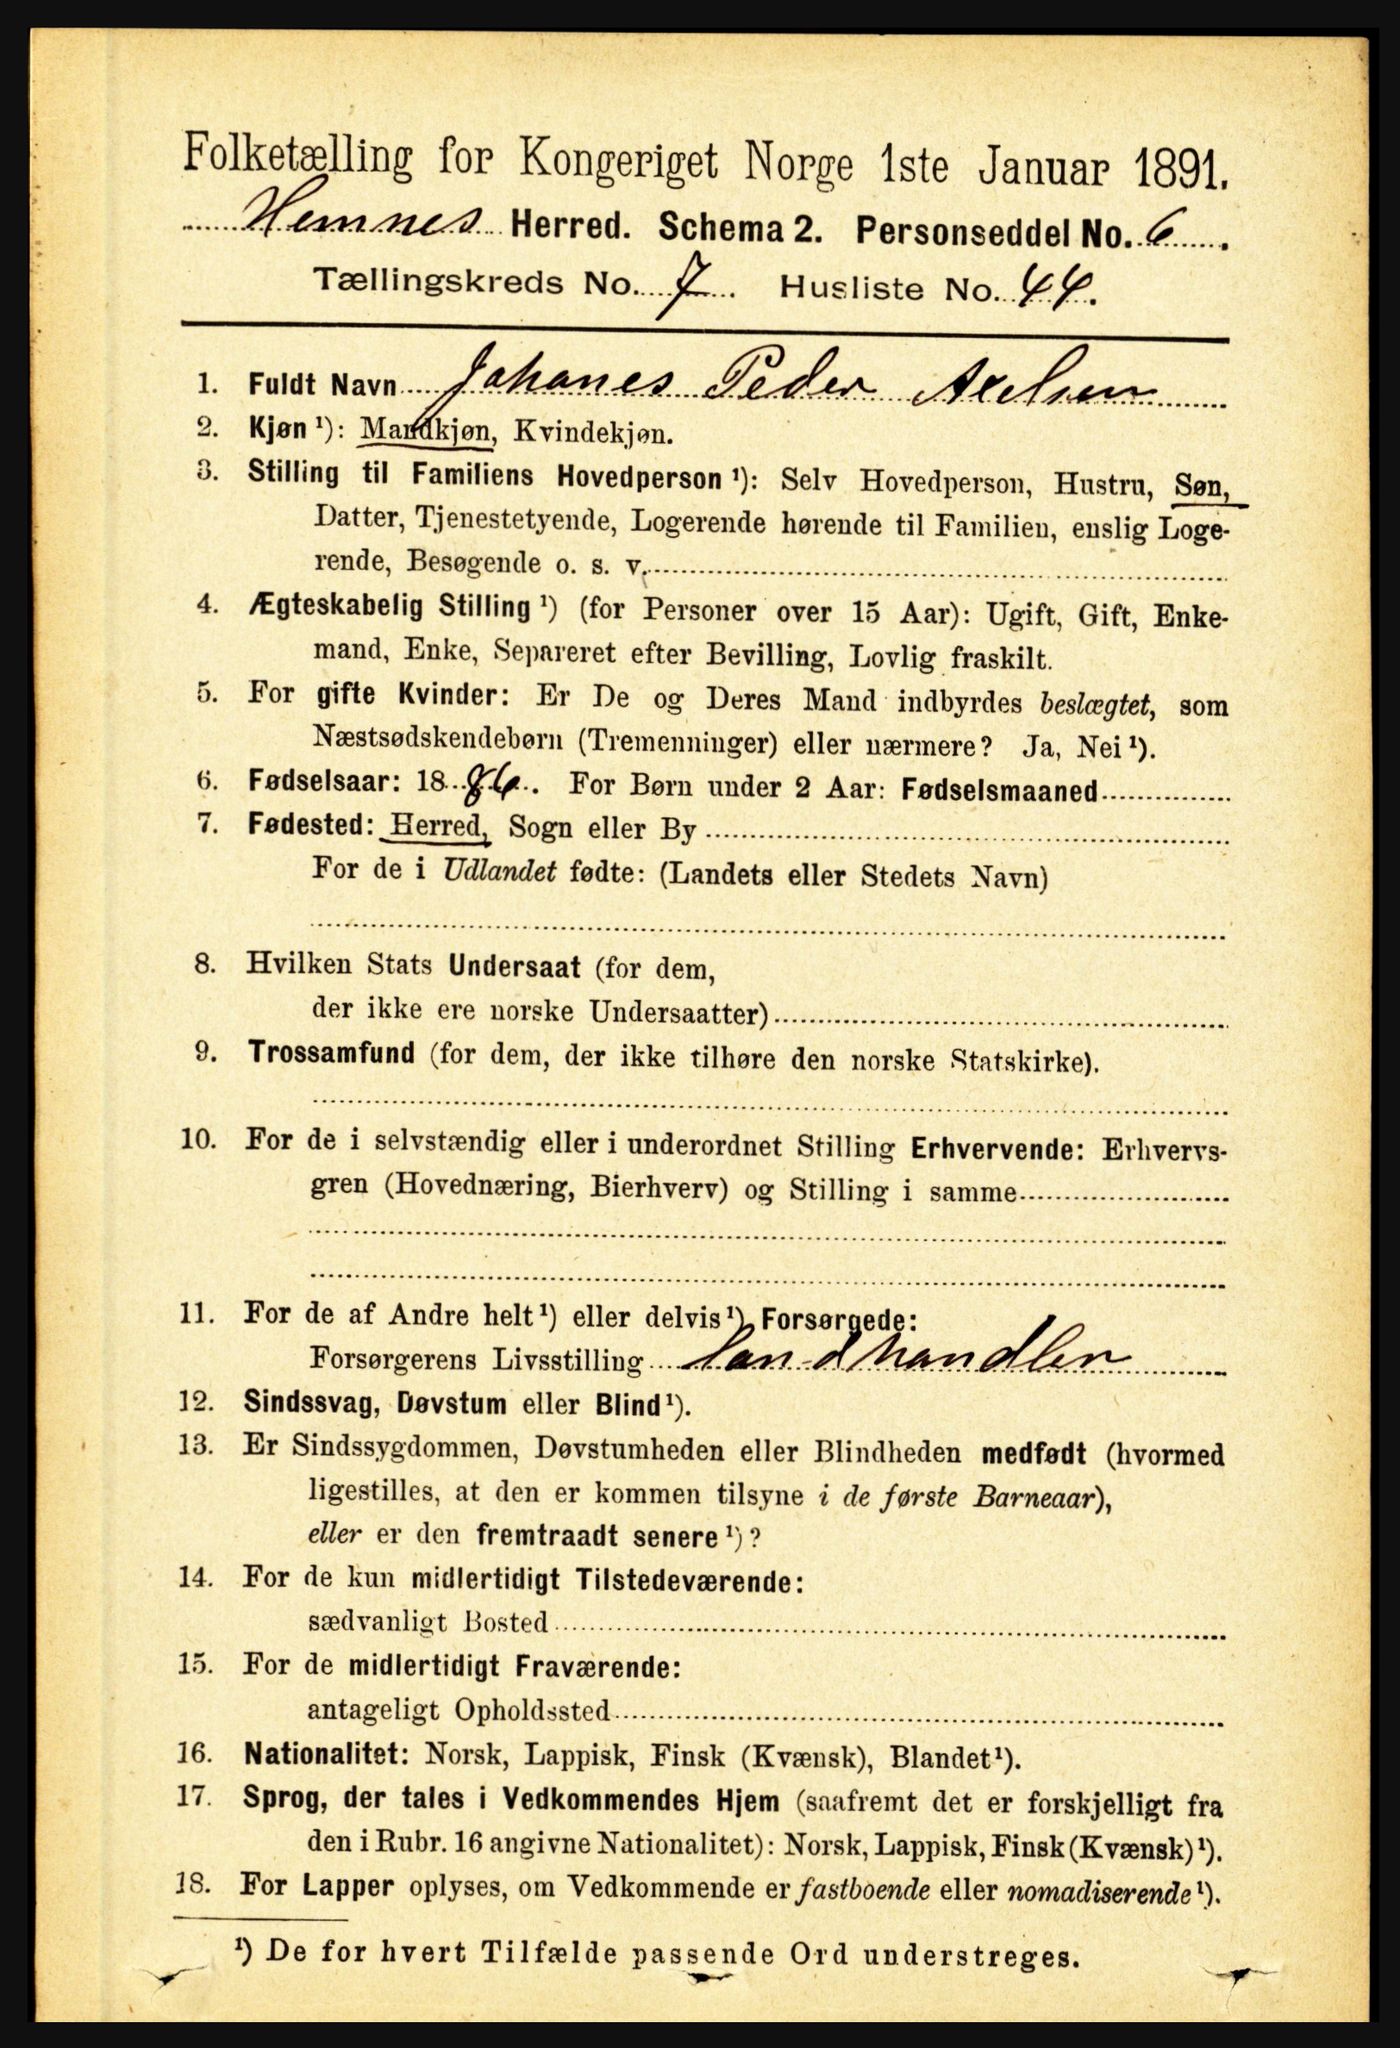 Folketælling for Kongeriget Norge 1ste Januar 1891.
Hemnes Herred. Schema 2. Personseddel No. 6.
Tællingskreds No. 7. Husliste No. 44.
1. Fuldt Navn Johanes Peder Axelsen
2. Kjøn ¹): Mandkjøn, Kvindekjøn.
3. Stilling til Familiens Hovedperson ¹): Selv Hovedperson, Hustru, Søn,
Datter, Tjenestetyende, Logerende hørende til Familien, enslig Loge-
rende, Besøgende o. s. v.
4. Ægteskabelig Stilling ¹) (for Personer over 15 Aar): Ugift, Gift, Enke-
mand, Enke, Separeret efter Bevilling, Lovlig fraskilt.
5. For gifte Kvinder: Er De og Deres Mand indbyrdes beslægtet, som
Næstsødskendebørn (Tremenninger) eller nærmere? Ja, Nei ¹).
6. Fødselsaar: 1886. For Børn under 2 Aar: Fødselsmaaned
7. Fødested: Herred, Sogn eller By
For de i Udlandet fødte: (Landets eller Stedets Navn)
8. Hvilken Stats Undersaat (for dem,
der ikke ere norske Undersaatter)
9. Trossamfund (for dem, der ikke tilhøre den norske Statskirke).
10. For de i selvstændig eller i underordnet Stilling Erhvervende: Erhvervs-
gren (Hovednæring, Bierhverv) og Stilling i samme
11. For de af Andre helt ¹) eller delvis ¹) Forsørgede:
Forsørgerens Livsstilling Landhandler
12. Sindssvag, Døvstum eller Blind ¹).
13. Er Sindssygdommen, Døvstumheden eller Blindheden medfødt (hvormed
ligestilles, at den er kommen tilsyne i de første Barneaar),
eller er den fremtraadt senere ¹)?
14. For de kun midlertidigt Tilstedeværende:
sædvanligt Bosted
15. For de midlertidigt Fraværende:
antageligt Opholdssted
16. Nationalitet: Norsk, Lappisk, Finsk (Kvænsk), Blandet ¹).
17. Sprog, der tales i Vedkommendes Hjem (saafremt det er forskjelligt fra
den i Rubr. 16 angivne Nationalitet): Norsk, Lappisk, Finsk (Kvænsk) ¹).
18. For Lapper oplyses, om Vedkommende er fastboende eller nomadiserende ¹).
¹) De for hvert Tilfælde passende Ord understreges.